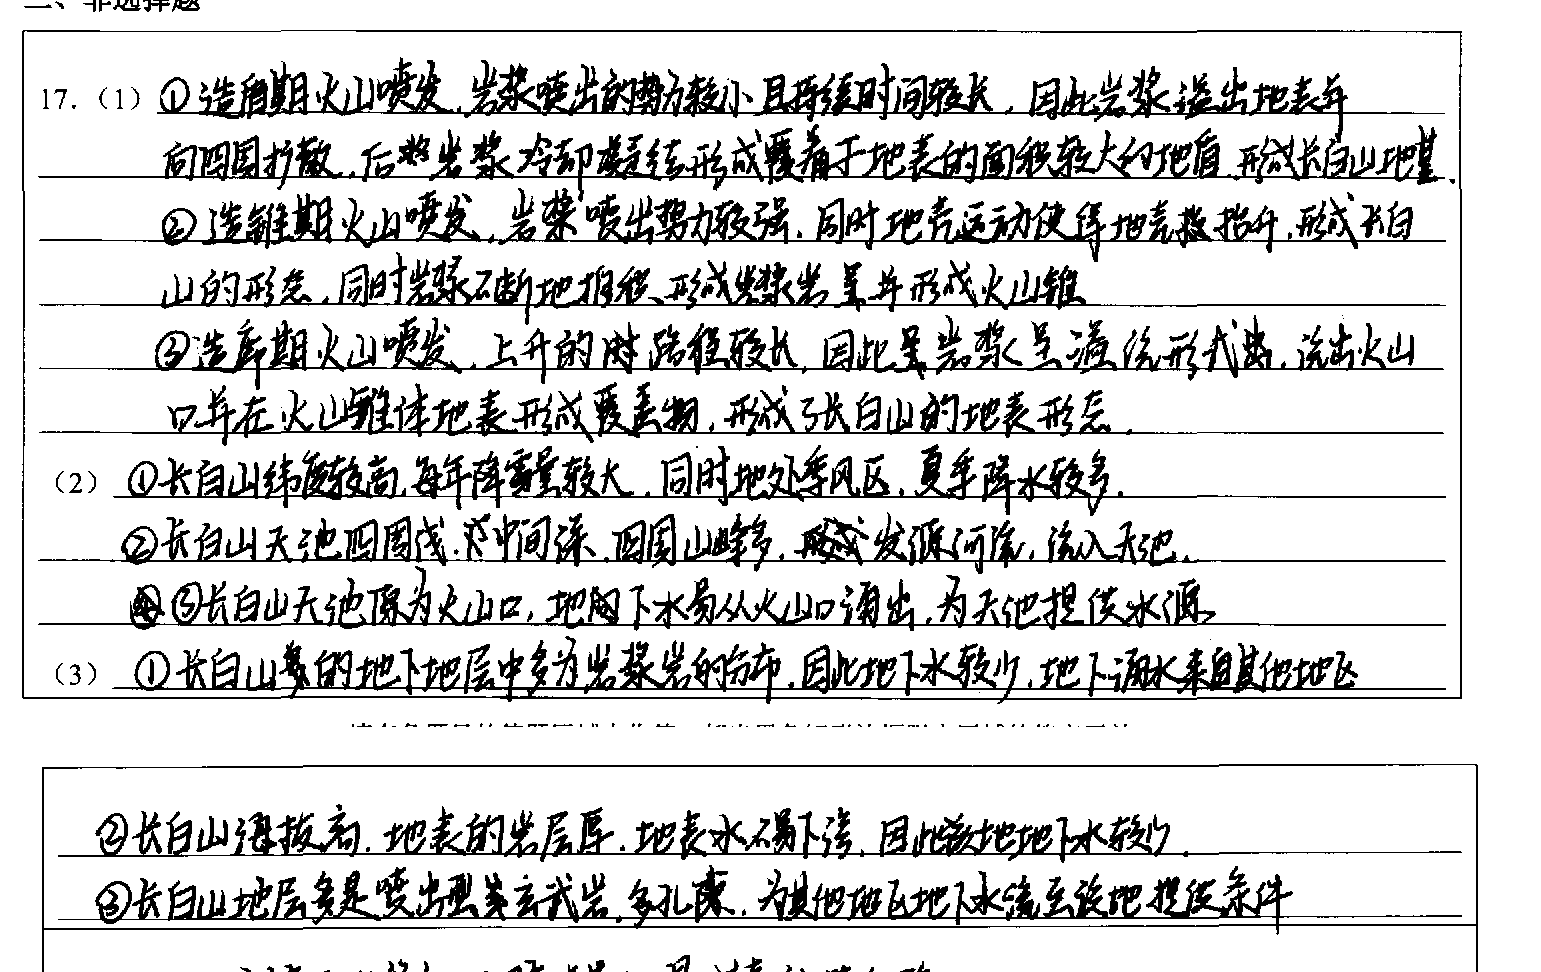 二、非选择题
17.（1）①造盾期火山喷发，岩浆喷出的势力较小且持续时间较长，因此岩浆溢出地表并
向四周扩散，后岩浆冷却凝结形成覆盖于地表的面积较大的地盾，形成长白山地基.
②造锥期火山喷发，岩浆喷出势力较强，同时地壳运动使得地壳抬升，形成长白
山的形态，同时岩浆不断地堆积、形成岩浆岩并形成火山锥
③造席期火山喷发，上升的路程较长，因此岩浆呈溢流形式，流出火山
口并在火山锥体地表形成覆盖物，形成了长白山的地表形态.
（2）①长白山纬度较高，每年降雪量较大，同时地处季风区，夏季降水较多.
②长白山天池四周浅，中间深，四周山峰多，发源河流，流入天池.
③长白山天池原为火山口，地下水易从火山口涌出，为天池提供水源
（3）①长白山的地下地层中多为岩浆岩的分布，因此地下水较少，地下涌水来自其他地区
②长白山海拔高，地表的岩层厚，地表水不易下渗，因此该地地下水较少.
③长白山地层多是喷出型玄武岩，多孔隙，为其他地区地下水流至该地提供条件